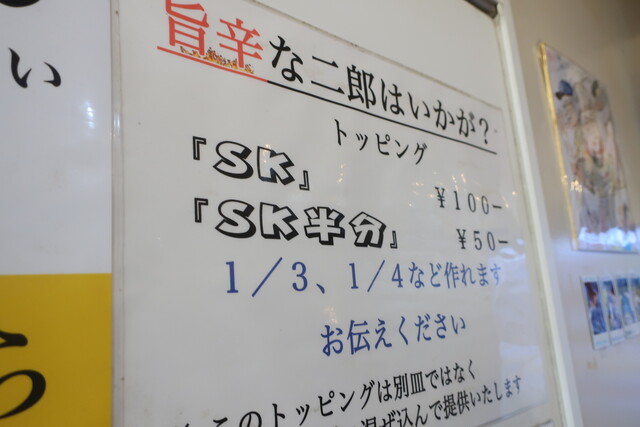 い
旨辛な二郎はいかが？
トッピング
『SK』 ￥100−
『SK半分』 ￥50−
1／3、1／4など作れます
お伝えください
このトッピングは別皿ではなく
混ぜ込んで提供いたします
う